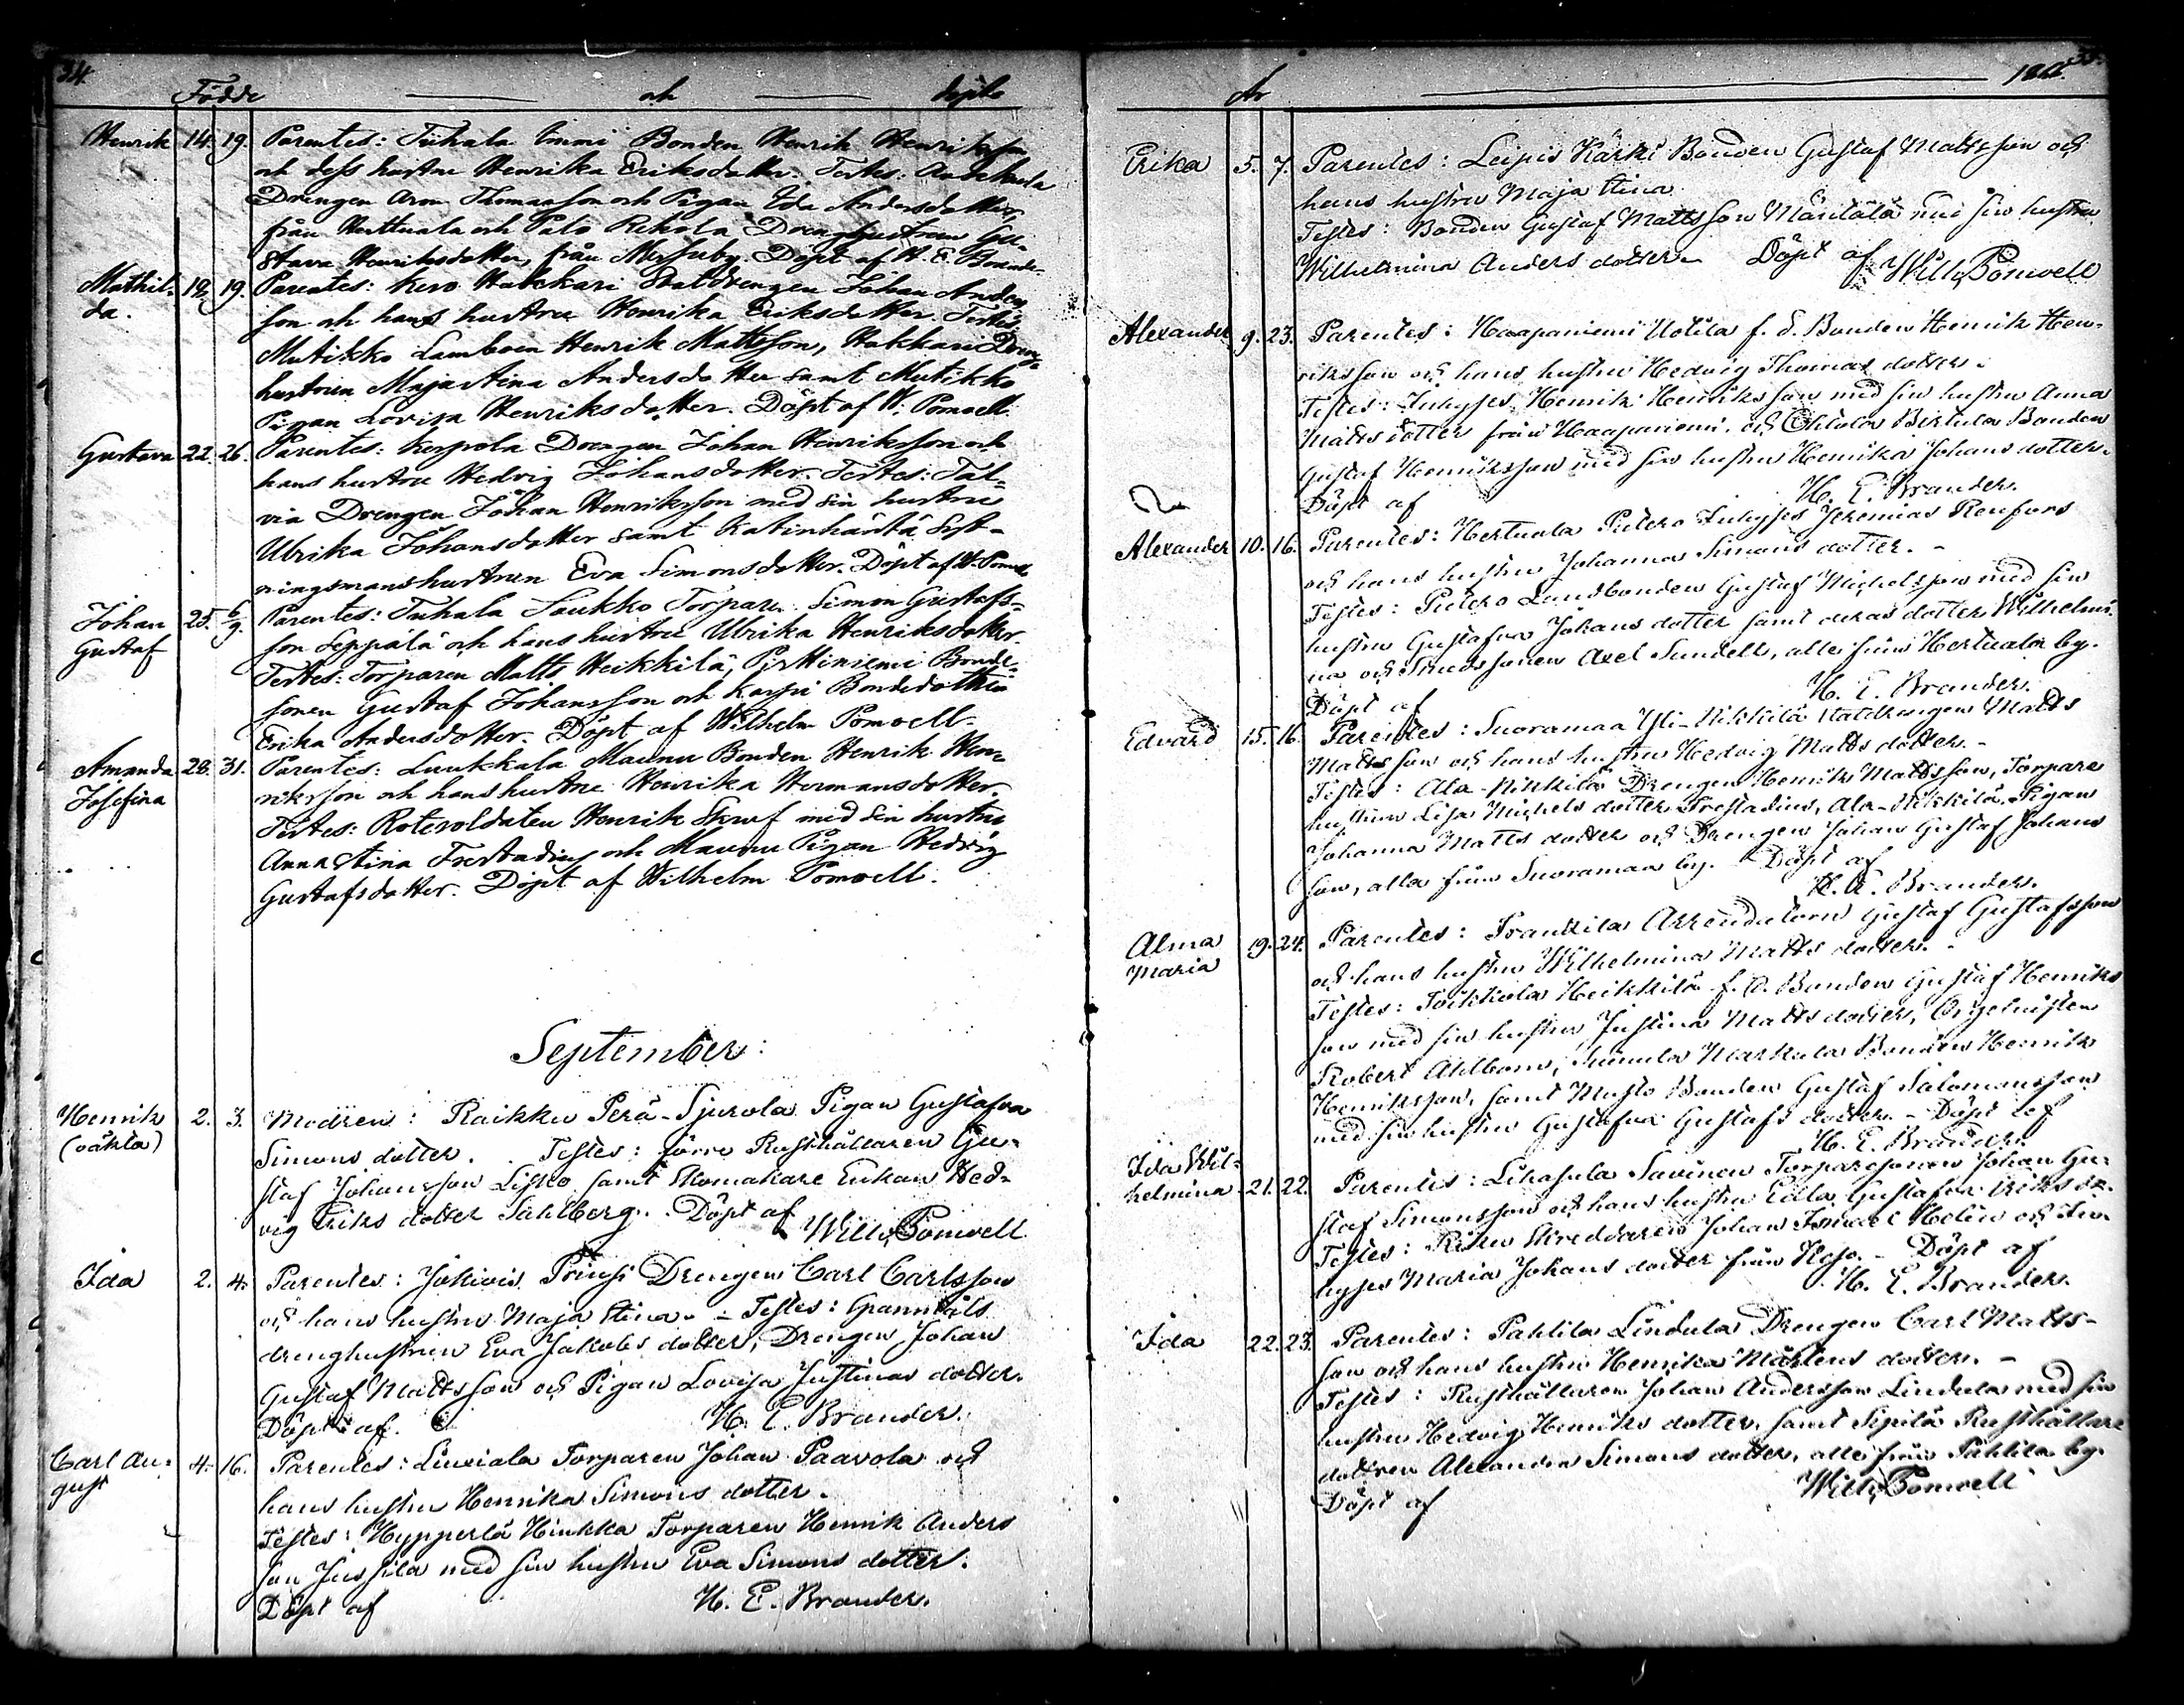 34.
Födde och döpte
Henrik 14. 19. Parentes: Tuhala Bonden Henrik Henriksson
och dess hustru Henrika Eriksdotter. Testes:
Drengen Thomasson och Pigan Ida Andersdotter,
från Herttuala och Palo Rekola Drenghustrun Gu-
stava Henriksdotter, från by. Döpt af H. E. Brander.
Mathil- 18. 19. Parentes: Kero Hakkari Statdrengen Johan Anders
da. son och hans hustru Henrika Eriksdotter. Testes
Mutikko Lamboen Henrik Mattsson, Hakkari Dreng-
hustrun Majastina Andersdotter samt Mutikko
Pigan Lovisa Henriksdotter. Döpt af W. Pomoell.
Gustava 22. 26. Parentes: Korpola Drengen Johan Henriksson och
hans hustru Hedvig Johansdotter. Testes: Tal-
via Drengen Johan Henriksson med sin hustru
Ulrika Johansdotter samt Katinhäntä Syt-
ningsmanshustrun Eva Simonsdotter. Döpt af W. Pomoell
Johan 25. 6/9. Parentes: Tuhala Saukko Torparn Simon Gustafs-
Gustaf son Seppälä och hans hustru Ulrika Henriksdotter.
Testes: Torparen Matts Heikkilä, Pyttiniemi Bonde-
sonen Gustaf Johansson och Karpi Bondedottren
Erika Andersdotter. Döpt af Wilhelm Pomoell.
Amanda 28. 31. Parentes: Luukkala Maunu Bonden Henrik Hen-
Josefina riksson och hans hustru Henrika Hermansdotter.
Testes: Rotesoldaten Henrik Skruf med sin hustru
Anna Stina Frestadius och Maunu Pigan Hedvig
Gustafsdotter. Döpt af Wilhelm Pomoell.
September:
Henrik 2. 3. Modren: Raikku Perä-Sjurola Pigan Gustafva
(oäkta) Simons dotter. Testes: förre Rusthållaren Gu-
staf Johansson Lisko samt Skomakare Enkan Hed-
vig Eriks dotter Sahlberg. Döpt af
Wilh. Pomoell
Ida 2. 4. Parentes: Jokivis Prinsi Drengen Carl Carlsson
och hans hustru Maja Stina. - Testes: Grannkäls
drenghustrun Eva Jakobs dotter, Drengen Johan
Gustaf Mattsson och Pigan Lovisa Justinas dotter.
Döpt af. H. E. Brander.
Carl Au- 4. 16. Parentes: Liuviala Torparen Johan Paavola och
gust hans hustru Henrika Simons dotter.
Testes: Hypperlä Hinkka Torparen Henrik Anders
son Jussila med sin hustru Eva Simons dotter.
Döpt af H. E. Brander.
35.
År 186
Erika 5. 7. Parentes: Leipis Kärki Bonden Gustaf Mattsson och
hans hustru Maja Stina
Testes: Bonden Gustaf Mattsson Mäntälä med sin hustru
Wilhelmina Anders dotter. Döpt af Wilh. Pomoell
Alexander 9. 23. Parentes: Haapaniemi Uotila f. d. Bonden Henrik Hen-
riksson och hans hustru Hedvig Thomas dotter.
Testes: Inhyses Henrik Henriksson med sin hustru Anna
Matts dotter från Haapaniemi, och Ohtola Birkula Bonden
Gustaf Henriksson med sin hustru Henrika Johans dotter.
Döpt af H. E. Brander.
Alexander 10. 16. Parentes: Hertuala Pietero Inhyses Jeremias Renfors
och hans hustru Johanna Simons dotter. -
Testes: Pietero Landbonden Gustaf Michelsson med sin
hustru Gustafva Johans dotter samt deras dotter Wilhelmi-
na och Smedssonen Axel Sundell, alle från Hertuala by.
Döpt af H. E. Brander.
Edvard 15. 16. Parentes: Suoramaa Yli-Nikkilä Statdrengen Matts
Mattsson och hans hustru Hedvig Matts dotter. -
Testes: Ala-Nikkilä Drengen Henrik Mattsson, Torpare
hustrun Lisa Michels dotter Frestadius, Ala-Nikkilä Pigan
Johanna Matts dotter och Drengen Johan Gustaf Johans
son, alla från Suoramaa by. Döpt af
H. E. Brander.
Alma 19. 24. Parentes: Frantila Arrendatorn Gustaf Gustafsson
Maria och hans hustru Wilhelmina Matts dotter. -
Testes: Toikkola Heikkilä f. d. Bonden Gustaf Henriks
son med sin hustru Justina Matts dotter, Orgelnisten
Robert Ahlbom, Markula Bonden Henrik
Henriksson, samt Musto Bonden Gustaf Salomonsson
med sin hustru Gustafva Gustafs dotter. - Döpt af
H. E. Brander.
Ida Wil-
helmina 21. 22. Parentes: Lihasula Savinen Torparesonen Johan Gu-
staf Simonsson och hans hustru Edla Gustafva Eriks dr.
Testes: Riku Skreddaren Johan Ismael Helin och In-
hyses Maria Johans dotter från Hapo. - Döpt af
H. E. Brander.
Ida 22. 23. Parentes: Pahlila Lindula Drengen Carl Matts-
son och hans hustru Henrika Mårtens dotter. -
Testes: Rusthållaren Johan Andersson Lindula med sin
hustru Hedvig Henriks dotter, samt Sipilä Rusthållare
dottren Alexandra Simons dotter, alle från Pahlila by.
Döpt af Wilh. Pomoell